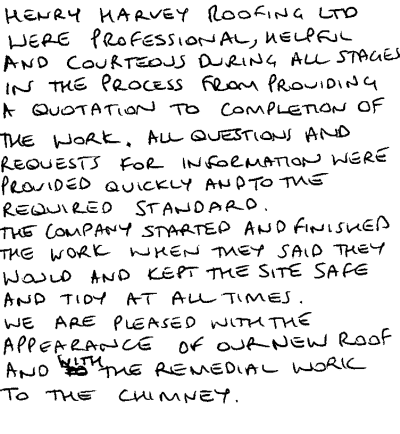 HENRY HARVEY ROOFING LTD
WERE PROFESSIONAL, HELPFUL
AND COURTEOUS DURING ALL STAGES
IN THE PROCESS FROM PROVIDING
A QUOTATION TO COMPLETION OF
THE WORK. ALL QUESTIONS AND
REQUESTS FOR INFORMATION WERE
PROVIDED QUICKLY AND TO THE
REQUIRED STANDARD.
THE COMPANY STARTED AND FINISHED
THE WORK WHEN THEY SAID THEY
WOULD AND KEPT THE SITE SAFE
AND TIDY AT ALL TIMES.
WE ARE PLEASED WITH THE
APPEARANCE OF OUR NEW ROOF
AND WITH THE REMEDIAL WORK
TO THE CHIMNEY.